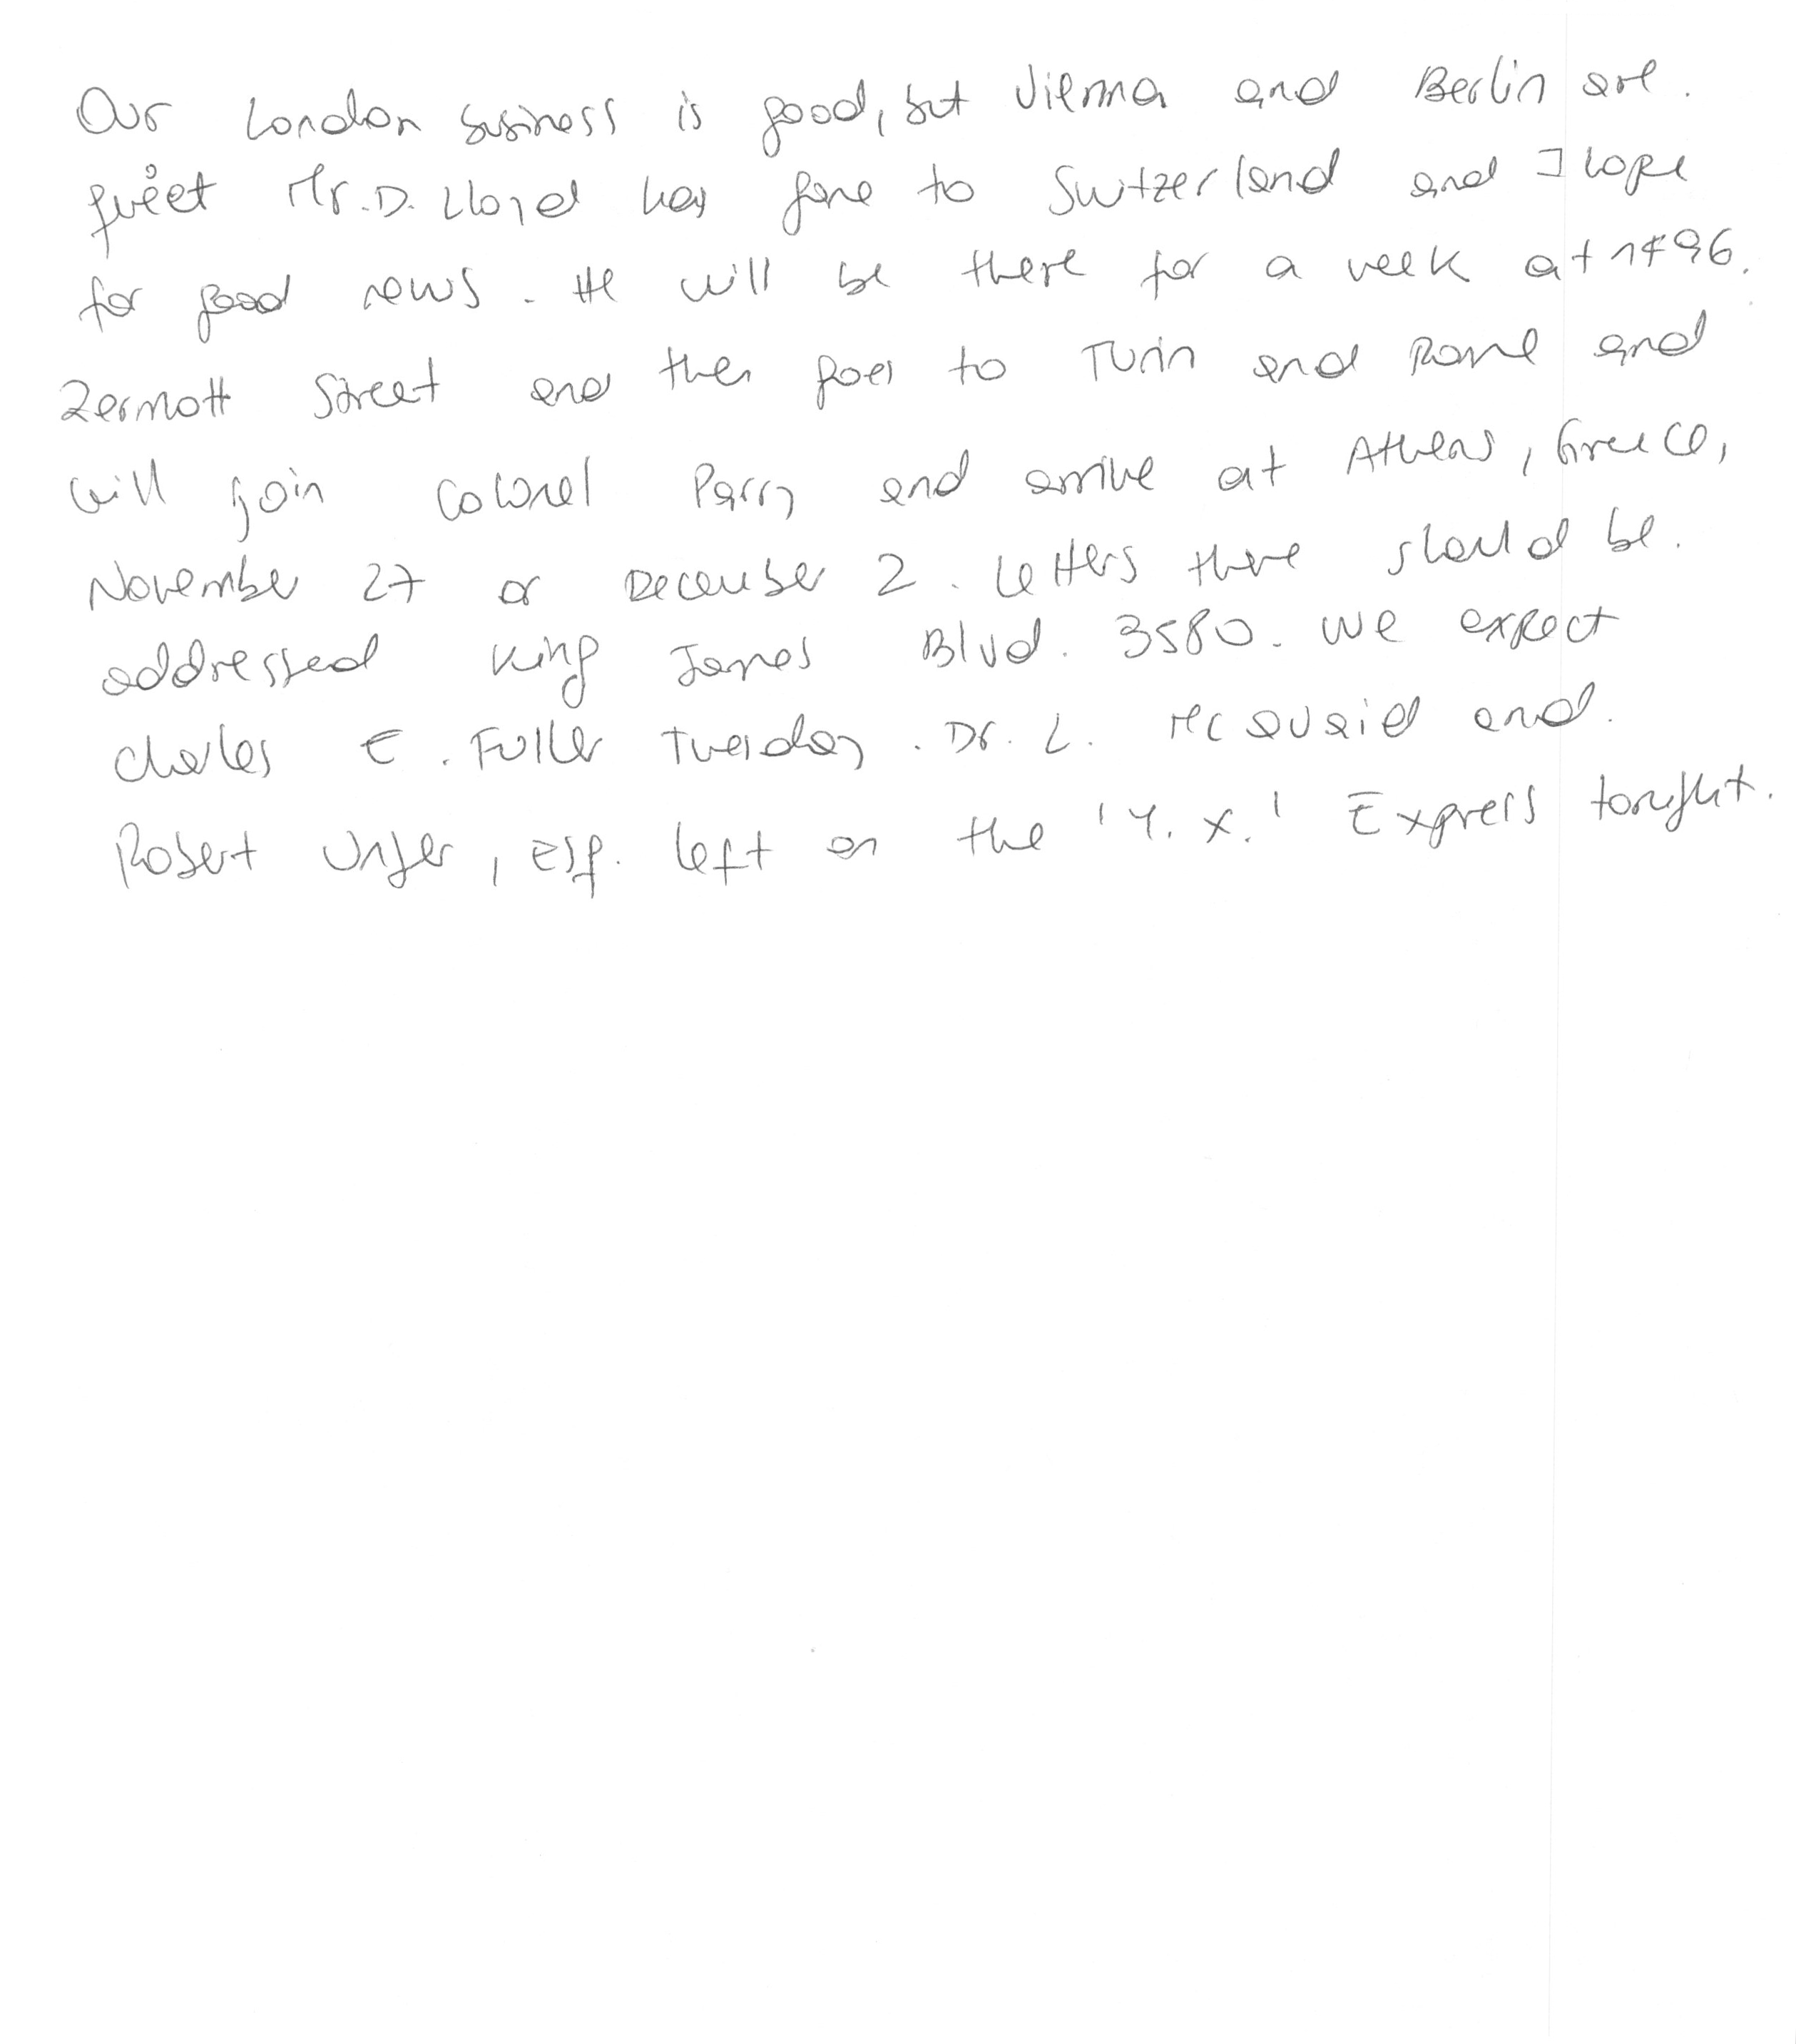 Our London business is good, but Vienna and Berlin are.
quiet Mr. D. Lloyd has gone to Switzerland and I hope
for good news. He will be there for a week at 1496.
Zermott Street and then goes to Turin and Rome and
will join Colonel Parry and arrive at Athens, Greece,
November 27 or December 2. Letters there should be.
addressed King James Blvd. 3580. We expect
Charles E. Fuller Tuesday. Dr. L. McQuaid and.
Robert Unger, Esq. left on the 'Y. X.' Express tonight.